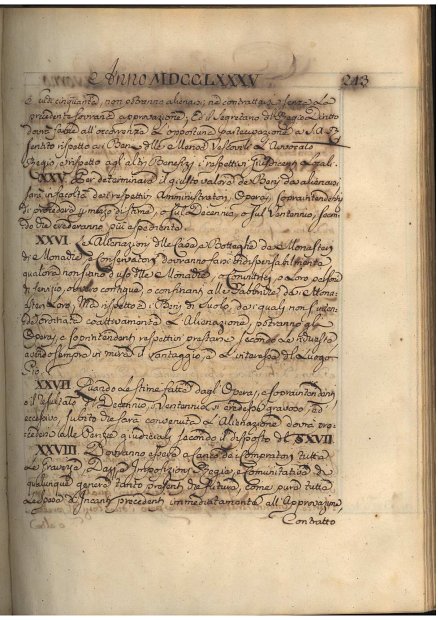 Anno MDCCLXXXV 213
e cinquanta, non potranno alienarsi, ne contrattarsi senza la
precedente sovrana approvazione; Ed il Segretario del Regio Diritto
dovrà fare all'occorrenza le opportune partecipazione a S. A. R.
sentito rispetto ai Beni delle Mense Vescovili l'Avvocato
Regio, e rispetto agl'altri Benefizj i respettivi
XXV Per determinare il giusto valore de Beni da alienarsi
sarà in facoltà de respettivi Amministratori, Operaj, Sopraintendenti
di procedere per mezzo di stime, o sul Decennio, o sul Ventennio, secon-
do che crederanno più espediente.
XXVI Le Alienazioni delle Case, e Botteghe da Monasteri
di Monache, e Conservatorj dovranno farsi indispensabilmente
qualora non siano ad uso delle Monache, o Convittrici, o loro persone
di servizio, ovvero contigue, o confinanti alle Fabbriche de Mona-
steri loro, Ma rispetto a i Beni di Suolo, de quali non s'inten-
de ordinata coattivamente l'Alienazione, potranno gli
Operaj, e Soprintendenti respettivi prestarsi secondo le
avendo sempre in mira il vantaggio, e l'interesse del Luogo
Pio.
XXVII Quando le stime fatte dagl'Operaj, e Sopraintendenti
o il resultato del Decennio, o Ventennio si credesse gravoso, ed
eccessivo, subito che sarà convenuta l'Alienazione dovrà pro-
cedersi alle Perizie giudiciali secondo il disposto del § XVII
XXVIII Dovranno essere a carico de Compratori tutte
le gravezze, Dazzi, Imposizioni Regie, e Comunitative di
qualunque genere tanto presenti che future, come pure tutte
le spese d'Incanti precedenti immediatamente all'Approvazione,
Contratto